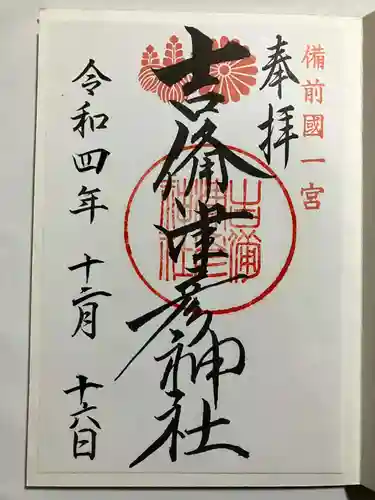 備前國一宮
奉拝
吉備津彦神社
吉備津彦神社
令和四年 十二月 十六日